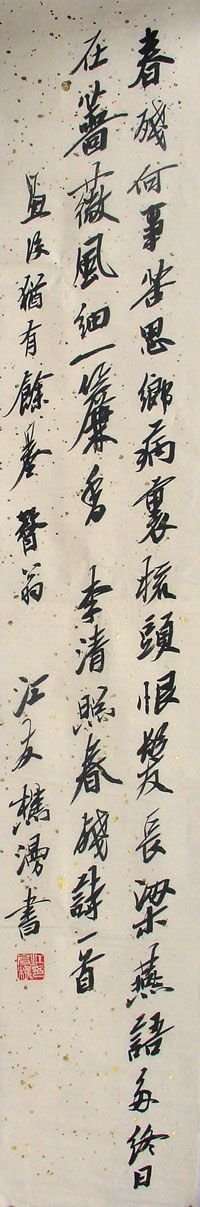 春殘何事苦思鄉病裏梳頭恨髮長梁燕語多終日
在薔薇風細一簾香 李清照春殘詩一首
畫後猶有餘墨 翁 江友樵漫書